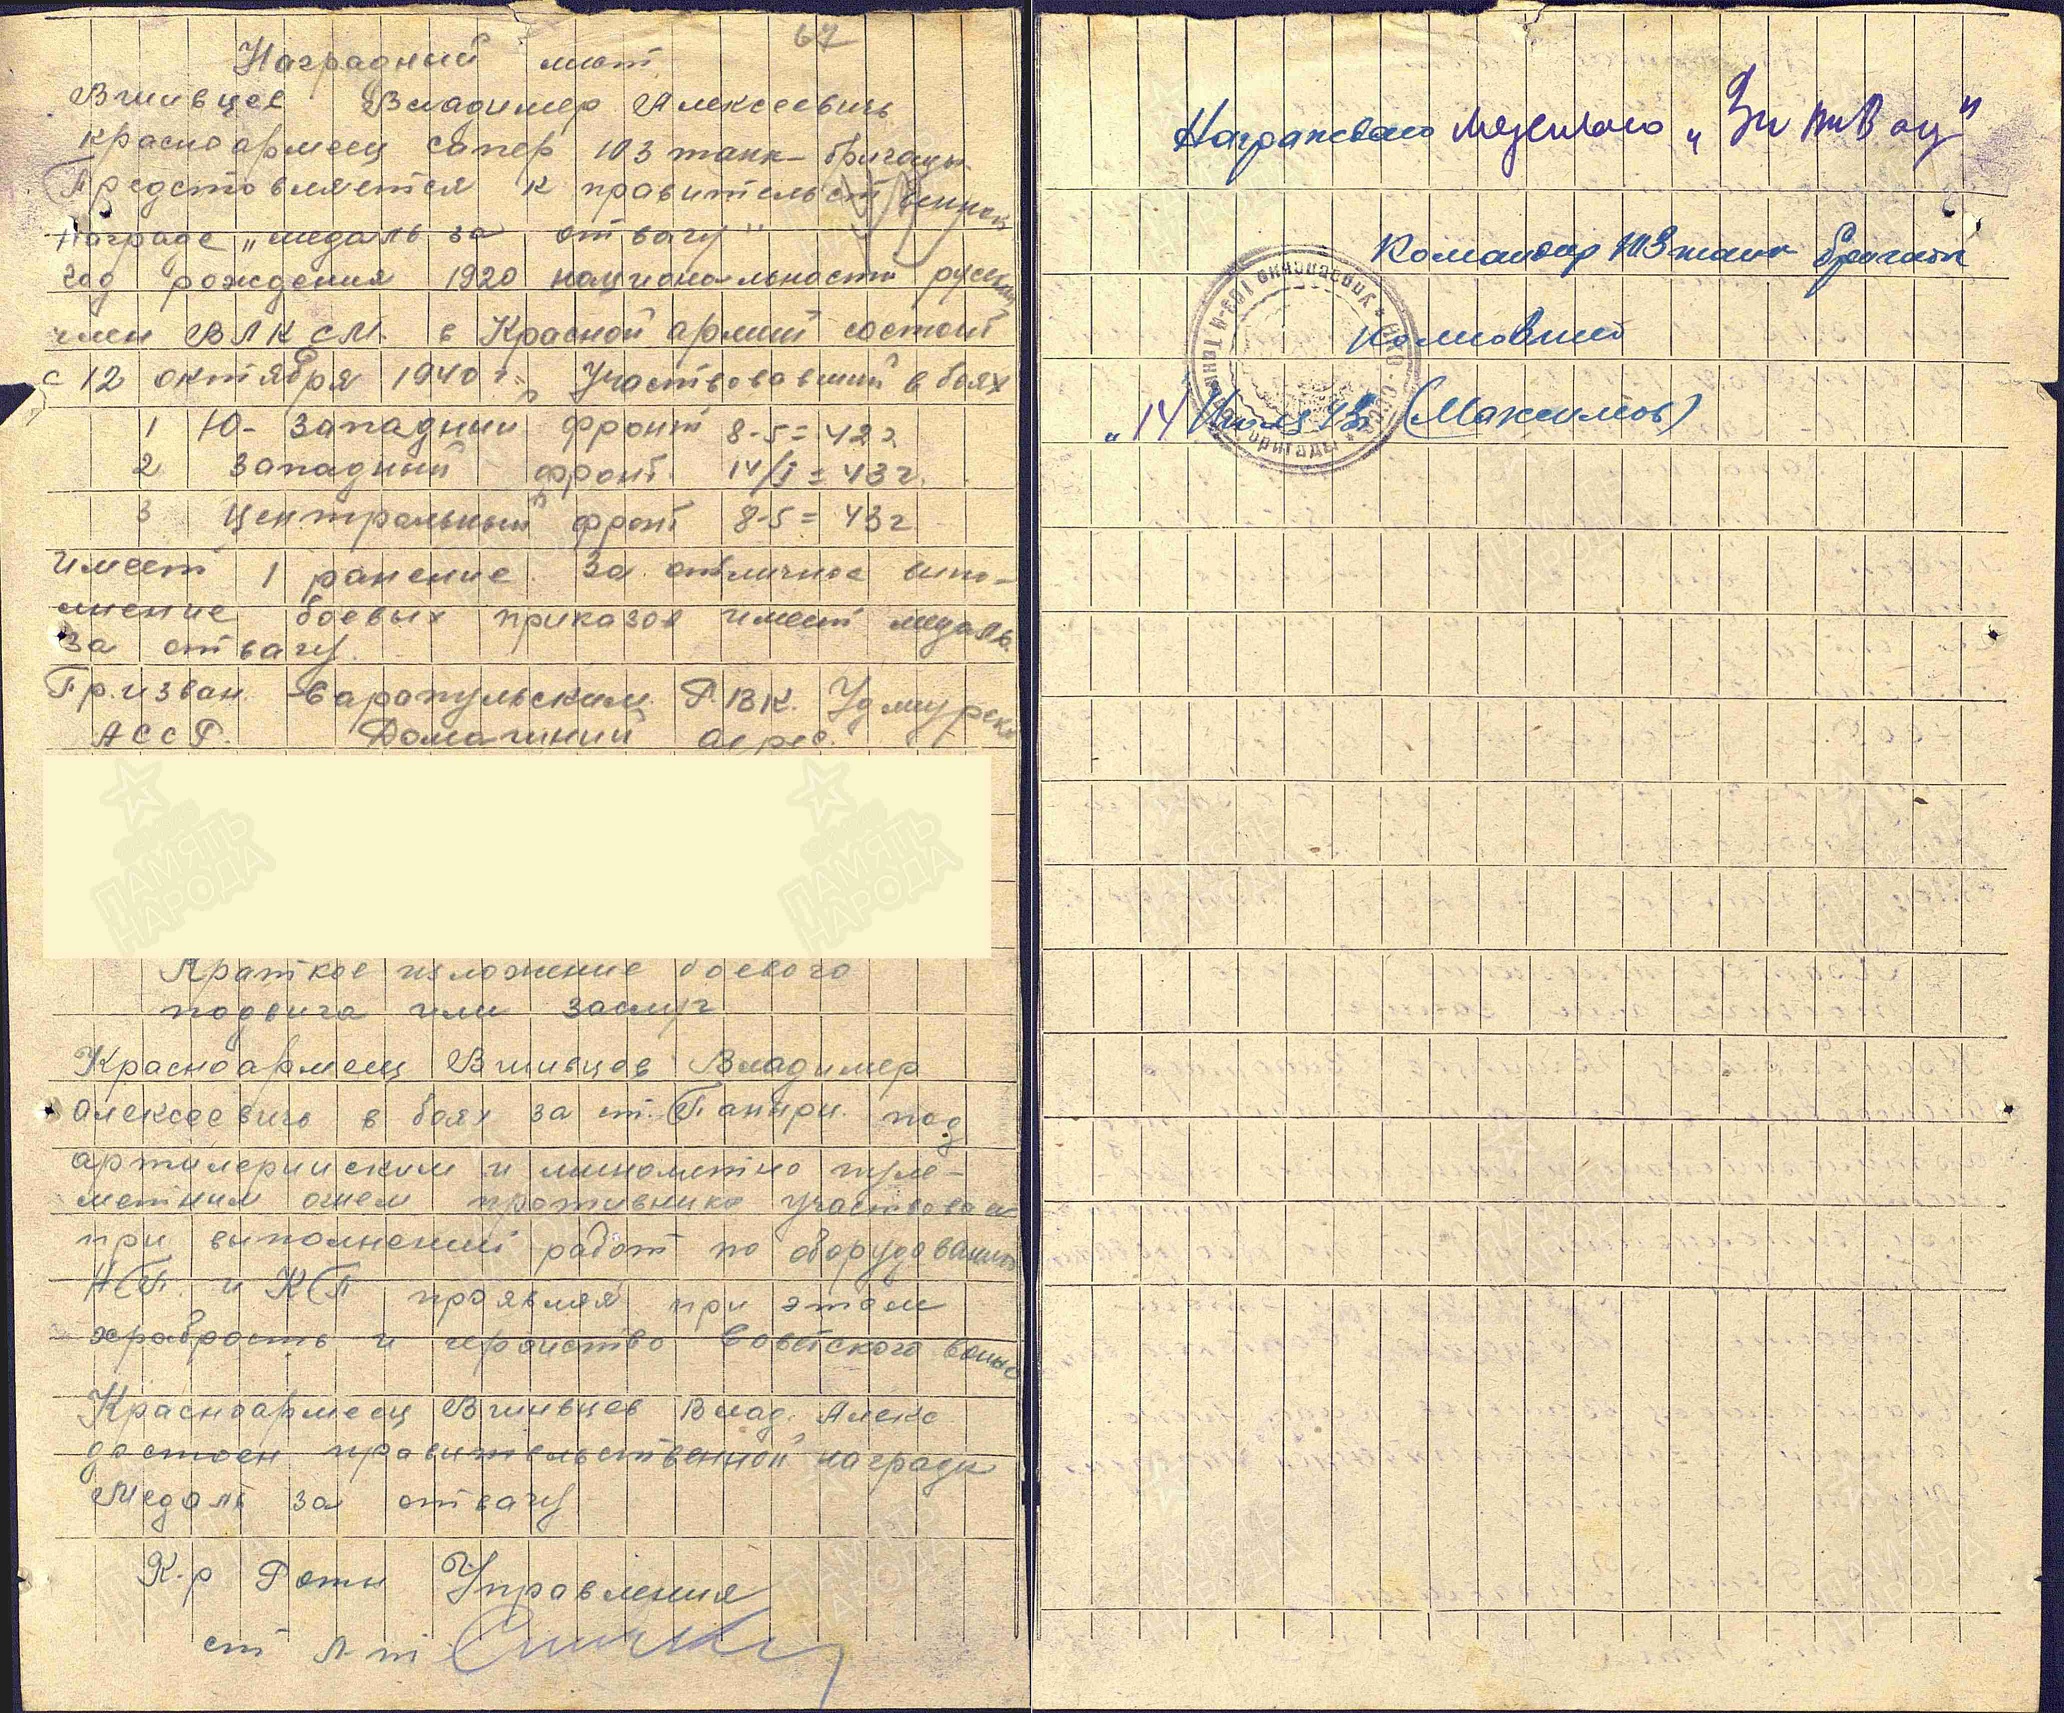 67
Наградный лист
Вшивцев Владимер Алексеевичь
красноармеец сапер 103 танк-бригады
Предстовляется к правительственной
награде „медаль за отвагу"
год рождения 1920 национальности русский
член ВЛКСМ. в Красной армии состоит
с 12 октября 1940 г., Участвовавший в боях
1 Ю-Западний фронт 8-5=42г
2 Западный фронт. 14/I=43г.
3 Центральный фронт 8-5=43г
имеет 1 ранение. За отличное випо-
лнение боевых приказов имеет медаль
за отвагу.
Призван Сарапульским Р.В.К. Удмурск
АССР. Домашний адрес.
ПАМЯТЬ НАРОДА
ПАМЯТЬ НАРОДА
Краткое изложение боевого
подвига или заслуг
Красноармеец Вшивцев Владимер
алексеевичь в боях за ст. Паныри. под
артилерииским и минометно пуле-
метним огнем противника участвовал
при выполнении работ по оборудованию
НП. и КП проявляя при этом
храбрость и героиство Советского воина
Красноармеец Вшивцев Влад. Алекс
достоен правительственной награди
Медаль за отвагу
К-р Роти Управления
ст л-т
Награжден медалью „За отвагу"
Командир 103 танк бригады
полковник
„14" Июля 43г (Максимов)